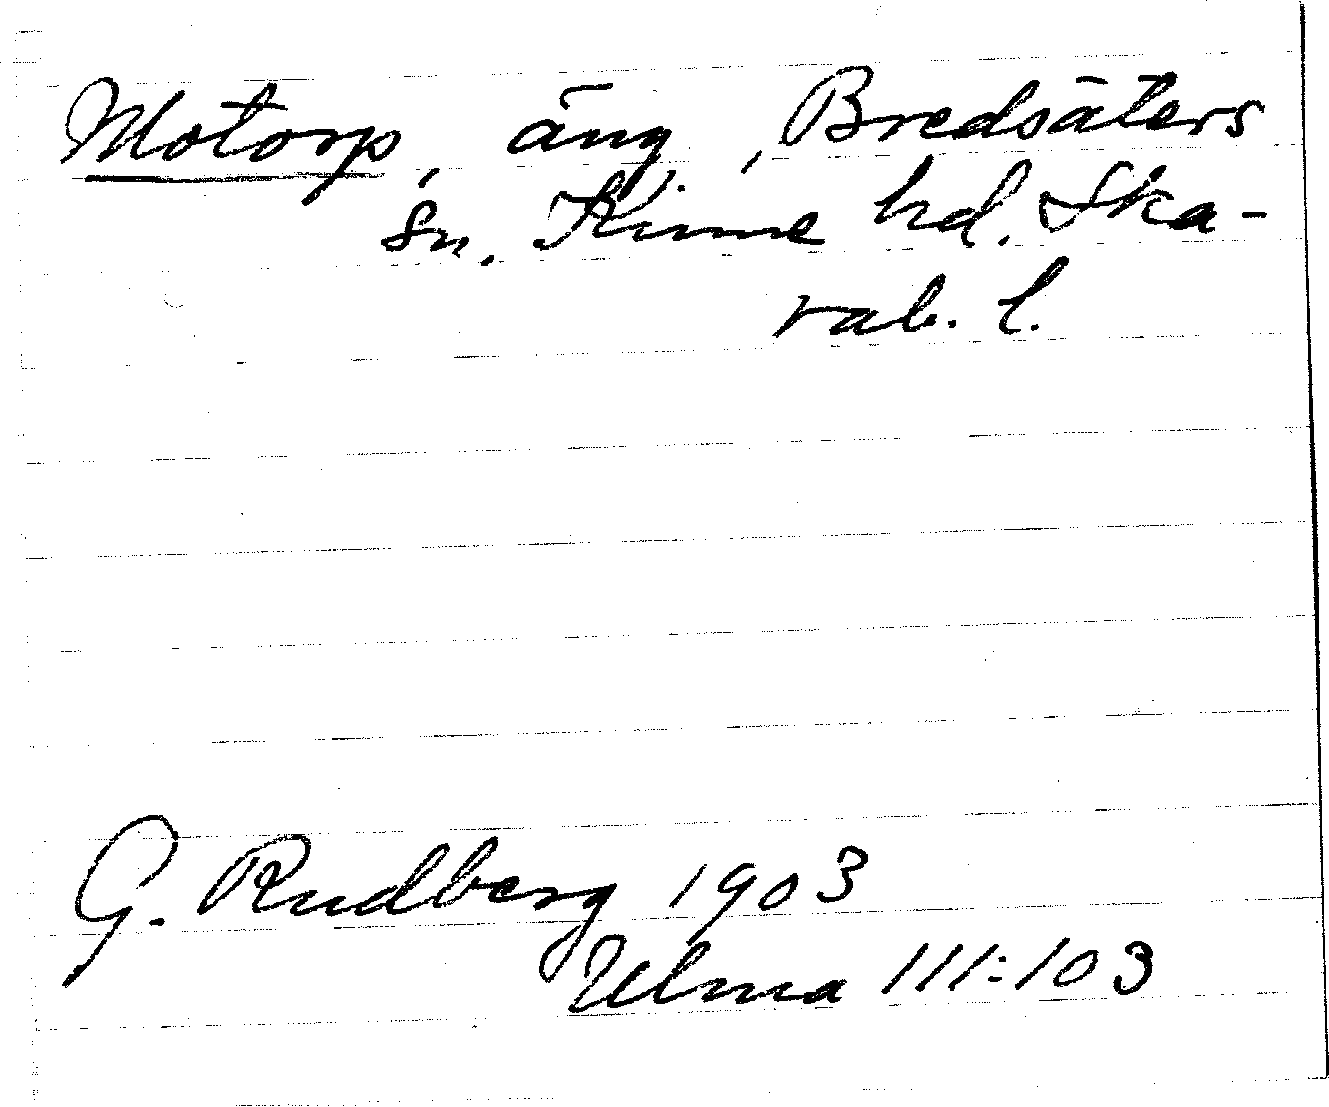 Motorp, äng, Bredsäters
sn. Kinne hd. Ska-
rab. l.
G. Rudberg 1903
Ulma 111:103